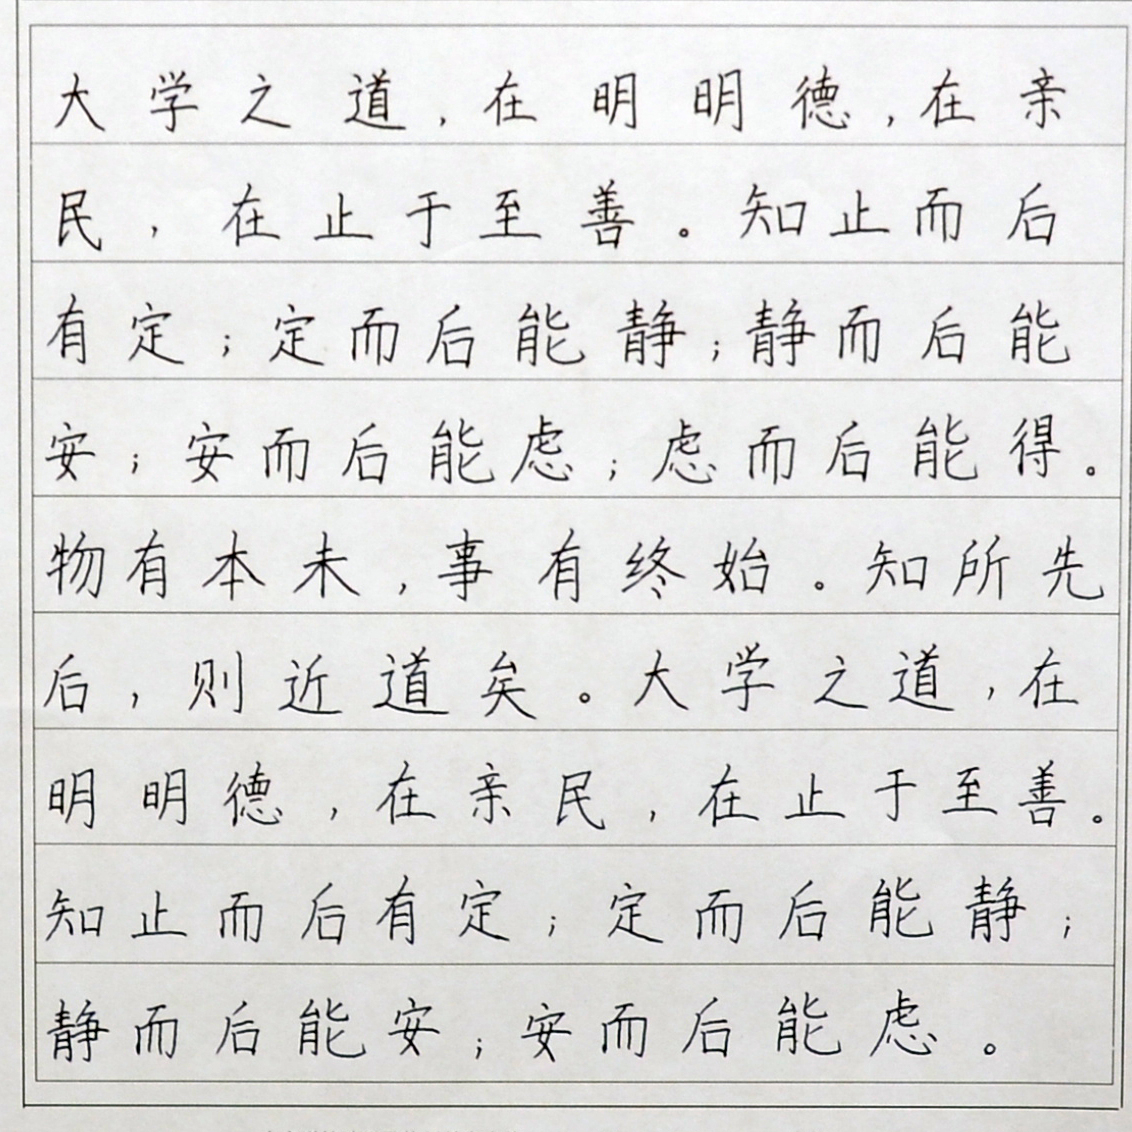 大学之道,在明明德,在亲
民,在止于至善。知止而后
有定;定而后能静;静而后能
安;安而后能虑;虑而后能得。
物有本未,事有终始。知所先
后,则近道矣。大学之道,在
明明德,在亲民,在止于至善。
知止而后有定;定而后能静;
静而后能安;安而后能虑。